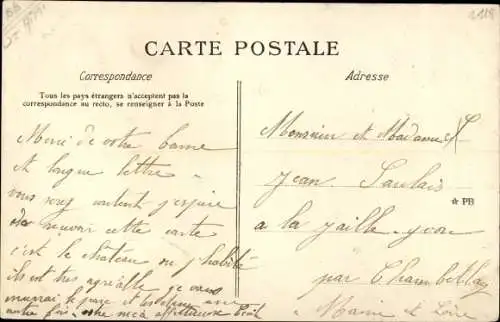 1118
CARTE POSTALE
Correspondance
Adresse
Tous les pays étrangers n'acceptent pas la
correspondance au recto, se renseigner à la Poste
Merci de votre bonne
et longue lettre
vous serez content j'espère
de recevoir cette carte
c'est le chateau ou j'habite
ils est très agréable je vous
le parc et
autre fois, votre affectueuse
Monsieur et Madame
Jean Saulais
a la jaille-yvon
par Chambellay
Maine et Loire
PB